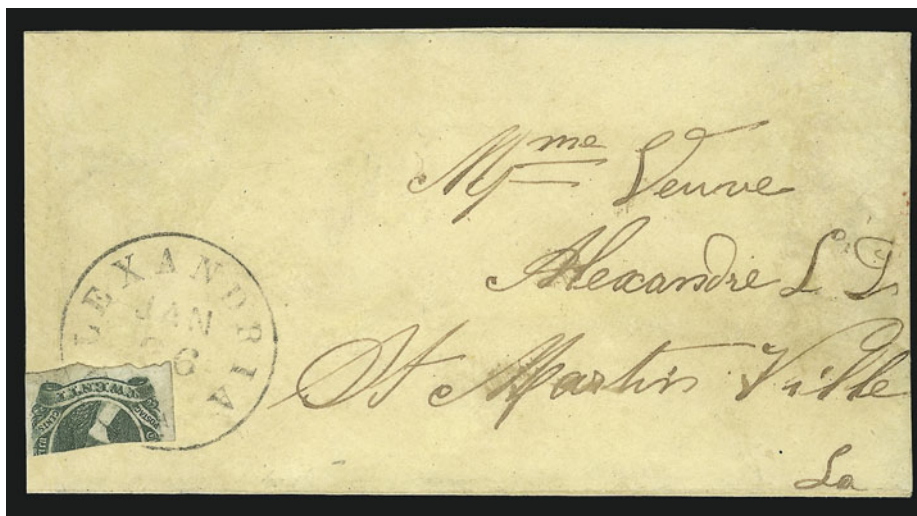 Mme Veuve
Alexandre L D
St Martin Ville
La
ALEXANDRIA
JAN
TWENTY